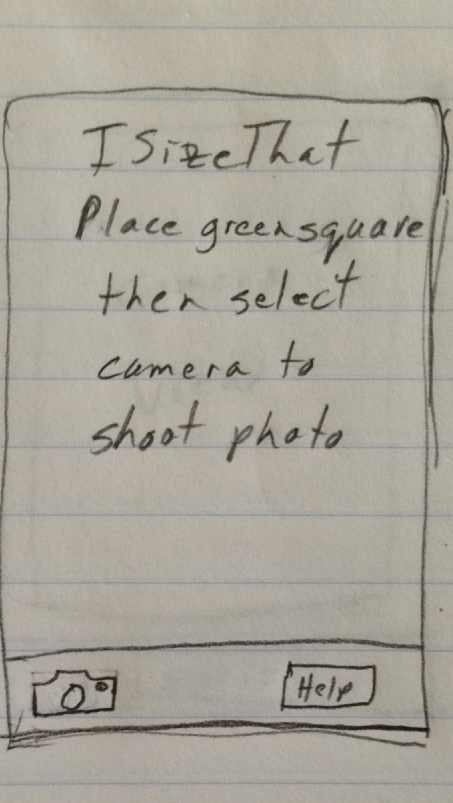 ISizeThat
Place green square
then select
camera to
shoot photo
Help